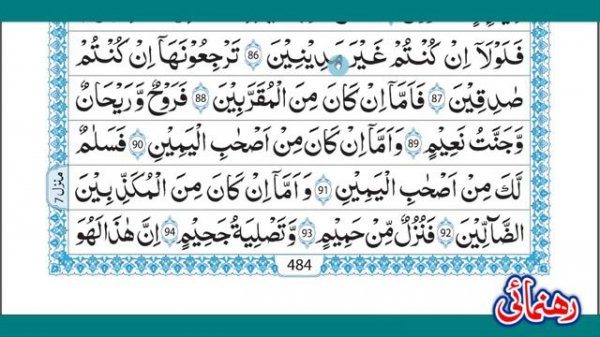 فَلَوْلَاۤ اِنْ كُنْتُمْ غَیْرَ مَدِیْنِیْنَ 86 تَرْجِعُوْنَهَاۤ اِنْ كُنْتُمْ
صٰدِقِیْنَ 87 فَاَمَّاۤ اِنْ كَانَ مِنَ الْمُقَرَّبِیْنَ 88 فَرَوْحٌ وَّ رَیْحَانٌ
وَّ جَنَّتُ نَعِیْمٍ 89 وَ اَمَّاۤ اِنْ كَانَ مِنْ اَصْحٰبِ الْیَمِیْنِ 90 فَسَلٰمٌ
لَّكَ مِنْ اَصْحٰبِ الْیَمِیْنِ 91 وَ اَمَّاۤ اِنْ كَانَ مِنَ الْمُكَذِّبِیْنَ
الضَّآلِّیْنَ 92 فَنُزُلٌ مِّنْ حَمِیْمٍ 93 وَّ تَصْلِیَةُ جَحِیْمٍ 94 اِنَّ هٰذَا لَهُوَ
منزل 7
484
رهنمائی